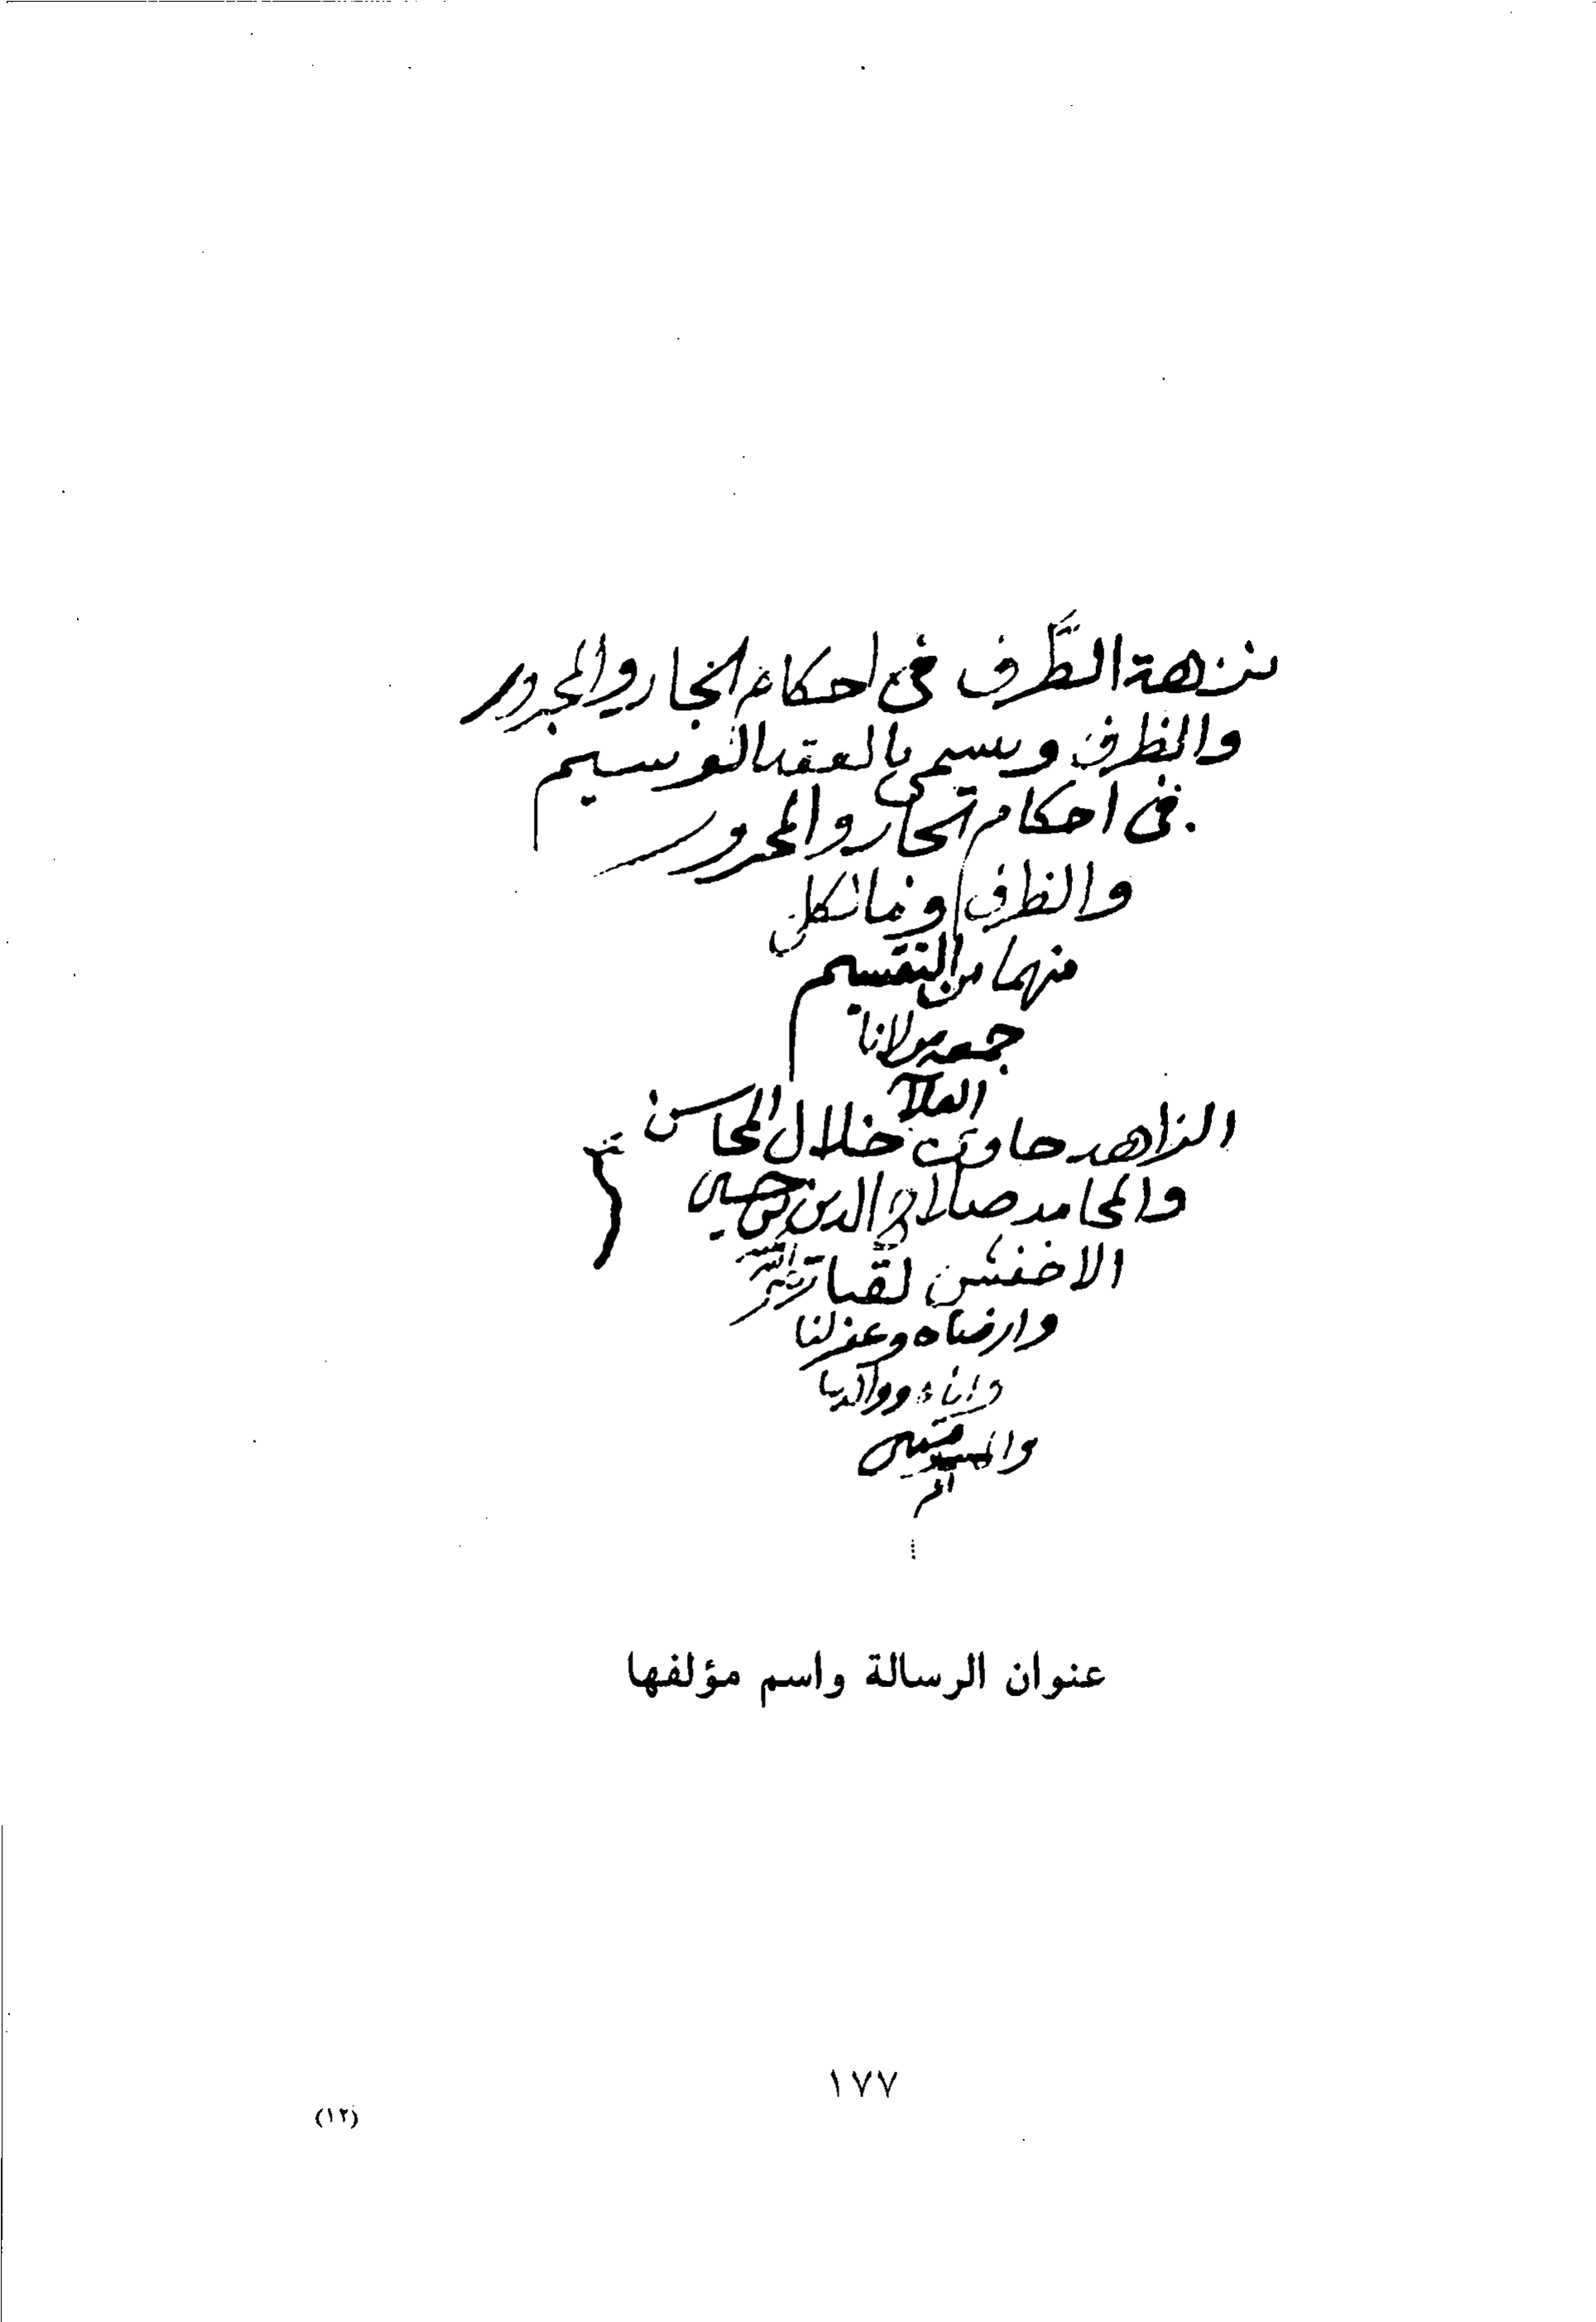 نزهة الطَّرف في احكام الجار والمجرور
والظرف ويسمى بالعقد الوسيم
في احكام الجار والمجرور
والظرف وما لكل
منهما من التقسيم
جمعه مولانا
العلامة
الزاهد حاوي خلال المحاسن
والمحامد صلاح الدين بن حسين
الاخفش لقبا رحمه الله
وارضاه وغفر لنا
وإياه ووالدينا
والمسلمين
عنوان الرسالة واسم مؤلفها
١٧٧
(١٢)